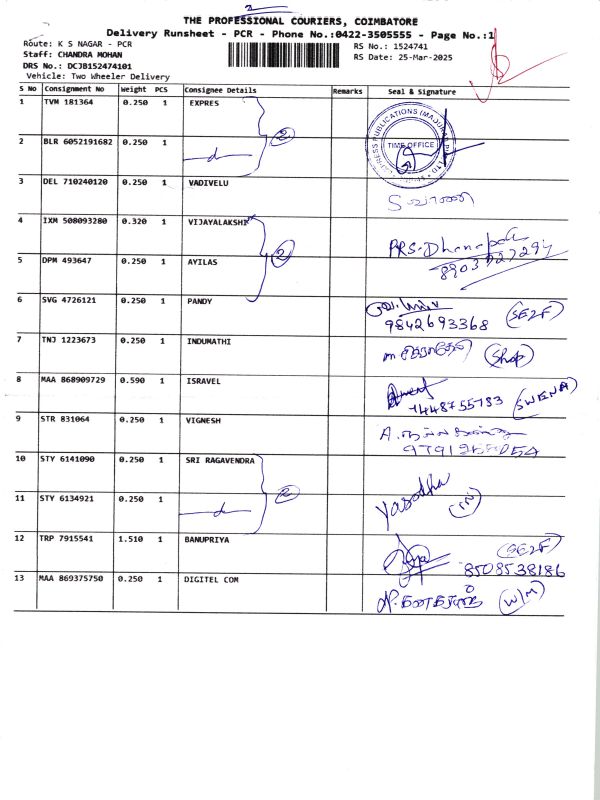 2
THE PROFESSIONAL COURIERS, COIMBATORE
Delivery Runsheet - PCR - Phone No.:0422-3505555 - Page No.:1
Route: K S NAGAR - PCR
Staff: CHANDRA MOHAN
DRS No.: DCJB152474101
Vehicle: Two Wheeler Delivery
RS No.: 1524741
RS Date: 25-Mar-2025
S No Consignment No Weight PCS Consignee Details Remarks Seal & Signature
1 TVM 181364 0.250 1 EXPRES
TIME OFFICE
2 BLR 6052191682 0.250 1 2
3 DEL 710240120 0.250 1 VADIVELU
4 IXM 508093280 0.320 1 VIJAYALAKSHI
5 DPM 493647 0.250 1 AYILAS 2
6 SVG 4726121 0.250 1 PANDY
9842693368 (SELF)
7 TNJ 1223673 0.250 1 INDUMATHI (Shop)
8 MAA 868909729 0.590 1 ISRAVEL
7448755783
9 STR 831064 0.250 1 VIGNESH
10 STY 6141090 0.250 1 SRI RAGAVENDRA
2 Yasodha
11 STY 6134921 0.250 1
12 TRP 7915541 1.510 1 BANUPRIYA (SELF)
8508538186
13 MAA 869375750 0.250 1 DIGITEL COM (W/M)